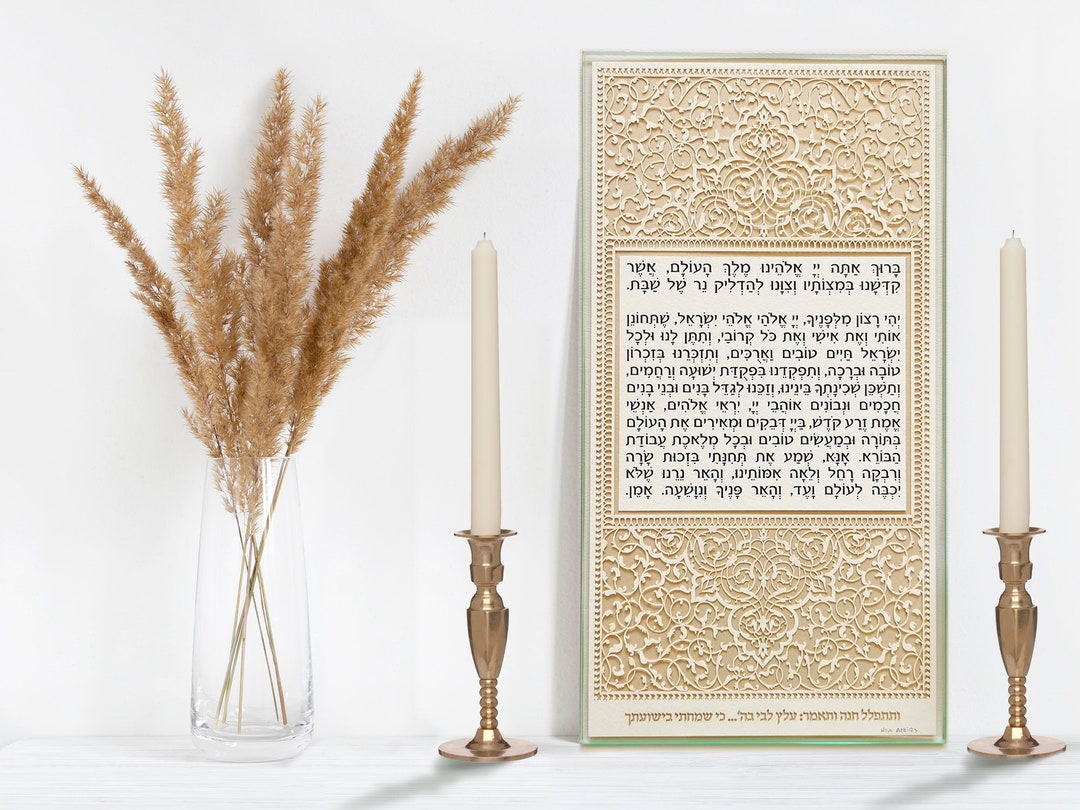 בָּרוּךְ אַתָּה יְיָ אֱלֹהֵינוּ מֶלֶךְ הָעוֹלָם, אֲשֶׁר
קִדְּשָׁנוּ בְּמִצְוֹתָיו וְצִוָּנוּ לְהַדְלִיק נֵר שֶׁל שַׁבָּת.
יְהִי רָצוֹן מִלְּפָנֶיךָ, יְיָ אֱלֹהַי אֱלֹהֵי יִשְׂרָאֵל, שֶׁתְּחוֹנֵן
אוֹתִי וְאֶת אִישִׁי וְאֶת כֹּל קְרוֹבַי, וְתִתֶּן לָנוּ וּלְכָל
יִשְׂרָאֵל חַיִּים טוֹבִים וַאֲרֻכִּים, וְתִזְכְּרֵנוּ בְּזִכְרוֹן
טוֹבָה וּבְרָכָה, וְתִפְקְדֵנוּ בִּפְקֻדַּת יְשׁוּעָה וְרַחֲמִים,
וְתַשְׁכֵּן שְׁכִינָתְךָ בֵּינֵינוּ, וְזַכֵּנוּ לְגַדֵּל בָּנִים וּבְנֵי בָנִים
חֲכָמִים וּנְבוֹנִים אוֹהֲבֵי יְיָ, יִרְאֵי אֱלֹהִים, אַנְשֵׁי
אֱמֶת זֶרַע קֹדֶשׁ, בַּייָ דְּבֵקִים וּמְאִירִים אֶת הָעוֹלָם
בְּתּוֹרָה וּבְמַעֲשִׂים טוֹבִים וּבְכָל מְלֶאכֶת עֲבוֹדַת
הַבּוֹרֵא. אָנָּא, שְׁמַע אֶת תְּחִנָּתִי בִּזְכוּת שָׂרָה
וְרִבְקָה רָחֵל וְלֵאָה אִמּוֹתֵינוּ, וְהָאֵר נֵרֵנוּ שֶׁלֹּא
יִכְבֶּה לְעוֹלָם וָעֶד, וְהָאֵר פָּנֶיךָ וְנִוָּשֵׁעָה. אָמֵן.
ותתפלל חנה ותאמר: עלץ לבי בה'... כי שמחתי בישועתך